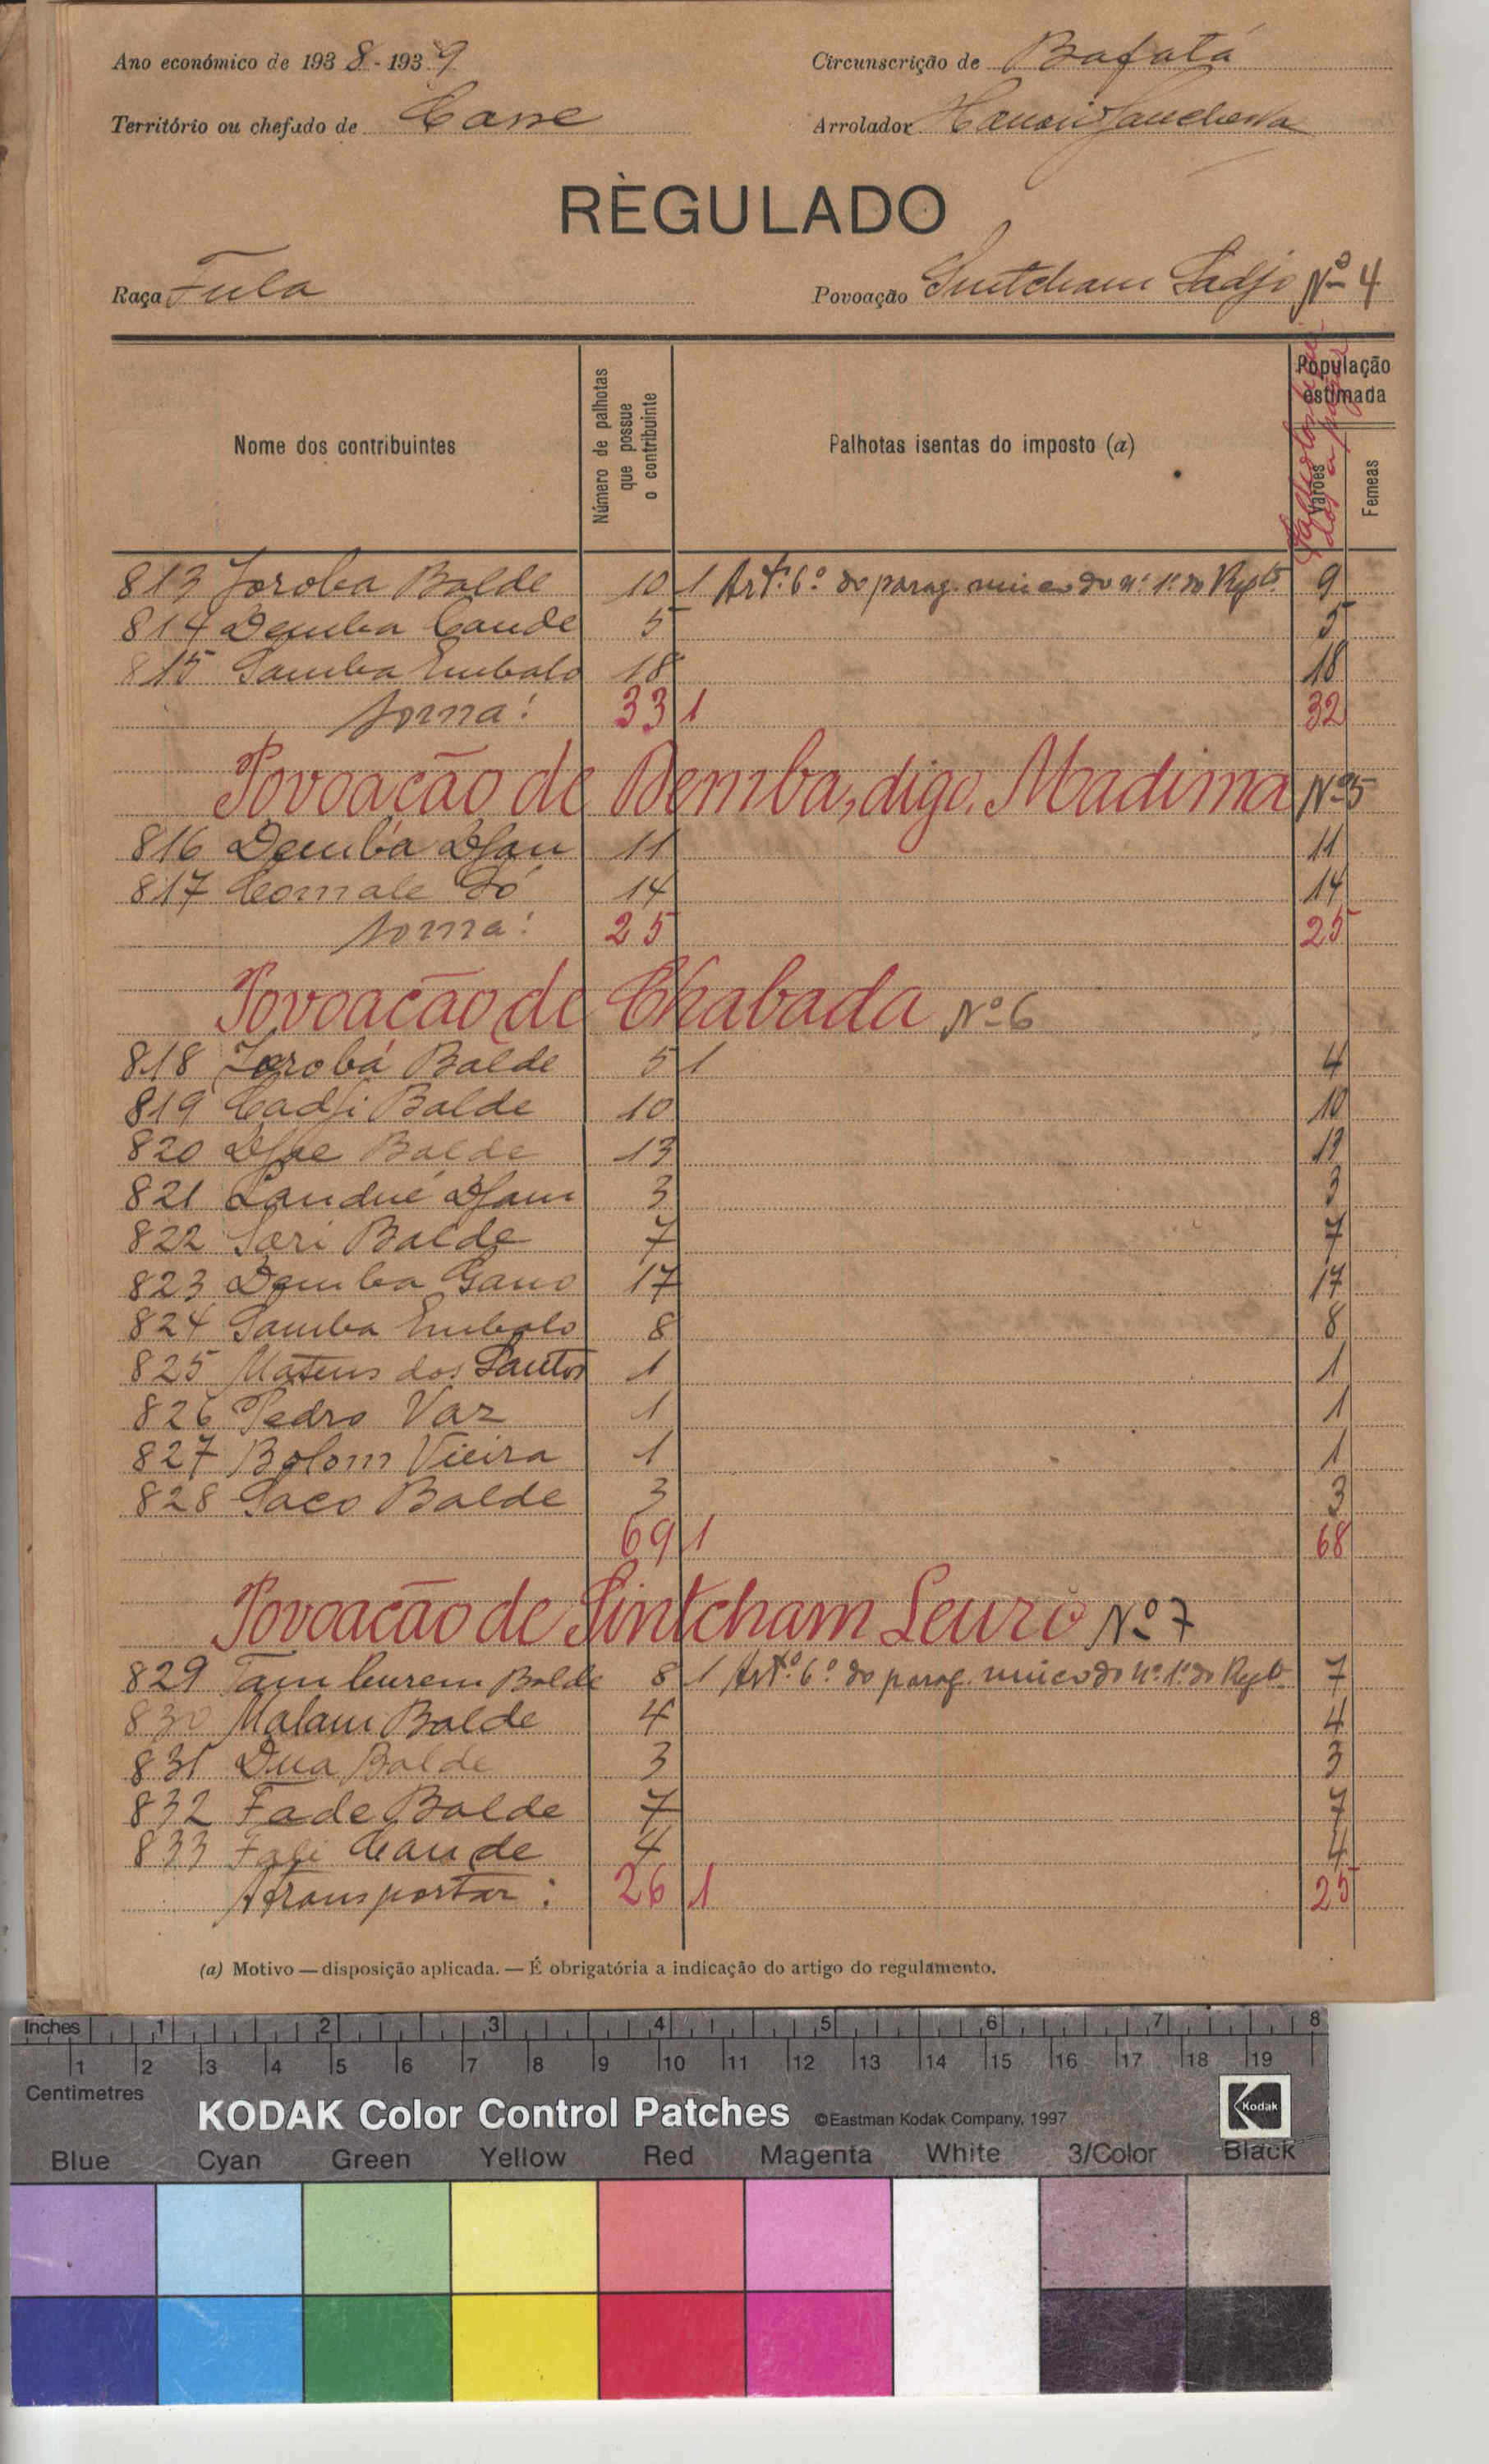 Ano económico de 1938-1939 Circunscrição de Bafatá
Território ou chefado de Canse Arrolador
RÈGULADO
Raça Fula Povoação Sintcham Sadjo Nº 4
Nome dos contribuintes
Número de palhotas que possue o contribuinte
Palhotas isentas do imposto (a)
População estimada
Varões
Femeas
813 Joroba Balde 10 1 Artº. 6º do parag. unico do nº 1º do Regtº 9
814 Demba Cande 5 5
815 Samba Embalo 18 18
Soma: 33 1 32
Povoação de Demba, digo, Madima Nº 5
816 Demba Djau 11 11
817 Comale Só 14 14
Soma: 25 25
Povoação de Chabada Nº 6
818 Jorobá Balde 5 1 4
819 Cadji Balde 10 10
820 Djae Balde 13 13
821 Sandué Djau 3 3
822 Sori Balde 7 7
823 Demba Gano 17 17
824 Samba Embalo 8 8
825 Mateus dos Santos 1 1
826 Pedro Vaz 1 1
827 Bolom Vieira 1 1
828 Saco Balde 3 3
69 1 68
Povoação de Sintcham Leuro Nº 7
829 Tamburem Balde 8 1 Artº. 6º do parag. unico do nº 1º do Regtº 7
830 Malam Balde 4 4
831 Dua Balde 3 3
832 Fade Balde 7 7
833 Fali Cande 4 4
A transportar: 26 1 25
(a) Motivo — disposição aplicada. — É obrigatória a indicação do artigo do regulamento.
Inches 1 2 3 4 5 6 7 8
1 2 3 4 5 6 7 8 9 10 11 12 13 14 15 16 17 18 19
Centimetres
KODAK Color Control Patches ©Eastman Kodak Company, 1997 Kodak
Blue Cyan Green Yellow Red Magenta White 3/Color Black